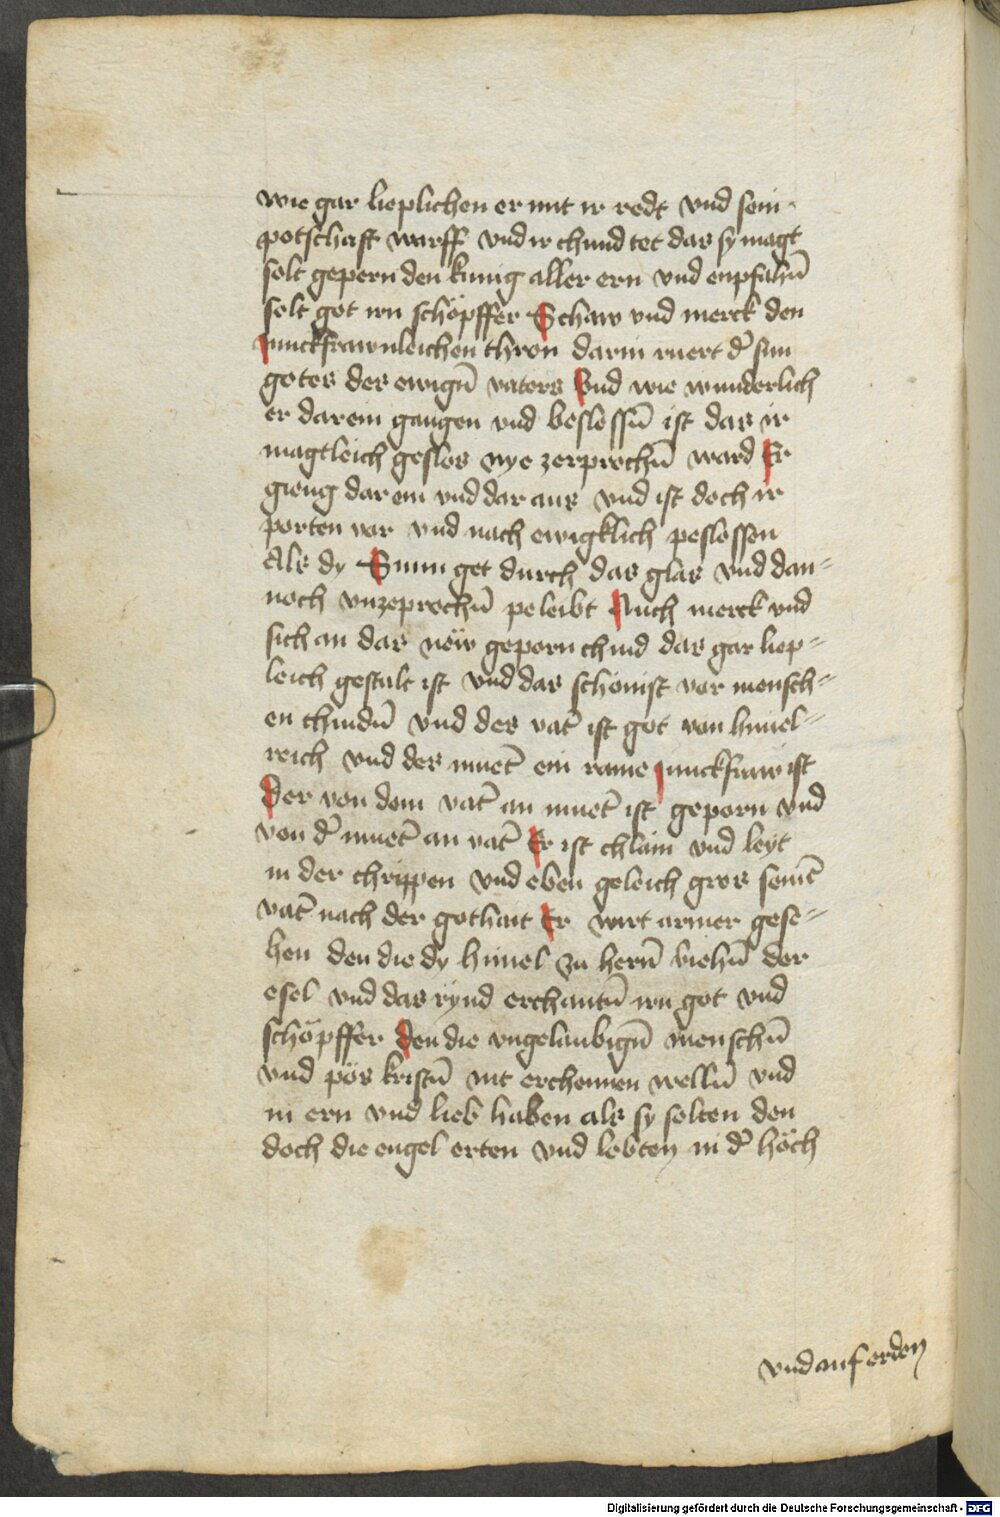 wie gar lieplichen er mit ir redt vnd sein
potschaft warff vnd ir chund tet das sy magt
solt gepern den kunig aller ern vnd enpfahn̄
solt got irn schöpffer Schaw vnd merck den
junckfrawnleichen thron darin ruert d̄ sun
gotes des ewign̄ vaters Vnd wie wunderlich
er darein gangen vnd beslossn̄ ist das ir
magtleich geslos nye zerprochn̄ ward Er
gieng dar ein vnd dar aus vnd ist doch ir
porten vor vnd nach ewigklich peslossen
Als dy Sunn get durch das glas vnd dan-
noch vnzeprochn̄ peleibt Auch merck vnd
sich an das new geporn chind das gar liep-
leich gestalt ist vnd das schonist vor mensch-
en chindn̄ vnd des vat̄ ist got von himel-
reich vnd des muet̄ ein raine junckfraw ist
Der von dem vat̄ an muet̄ ist geporn vnd
von d̄ muet̄ an vat̄ Er ist chlain vnd leyt
in der chrippen vnd eben geleich gros seim̄
vat̄ nach der gothait Er wirt armer gese-
hen den die dy himel zu hern̄ viehn̄ der
esel vnd das rynd erchantn̄ irn got vnd
schöpffer den die vngelaubign̄ menschn̄
vnd pös kristn̄ nit erchennen welln̄ vnd
in ern vnd lieb haben als sy solten den
doch die engel erten vnd lobten in d̄ höch
vnd auf erden
Digitalisierung gefördert durch die Deutsche Forschungsgemeinschaft - DFG